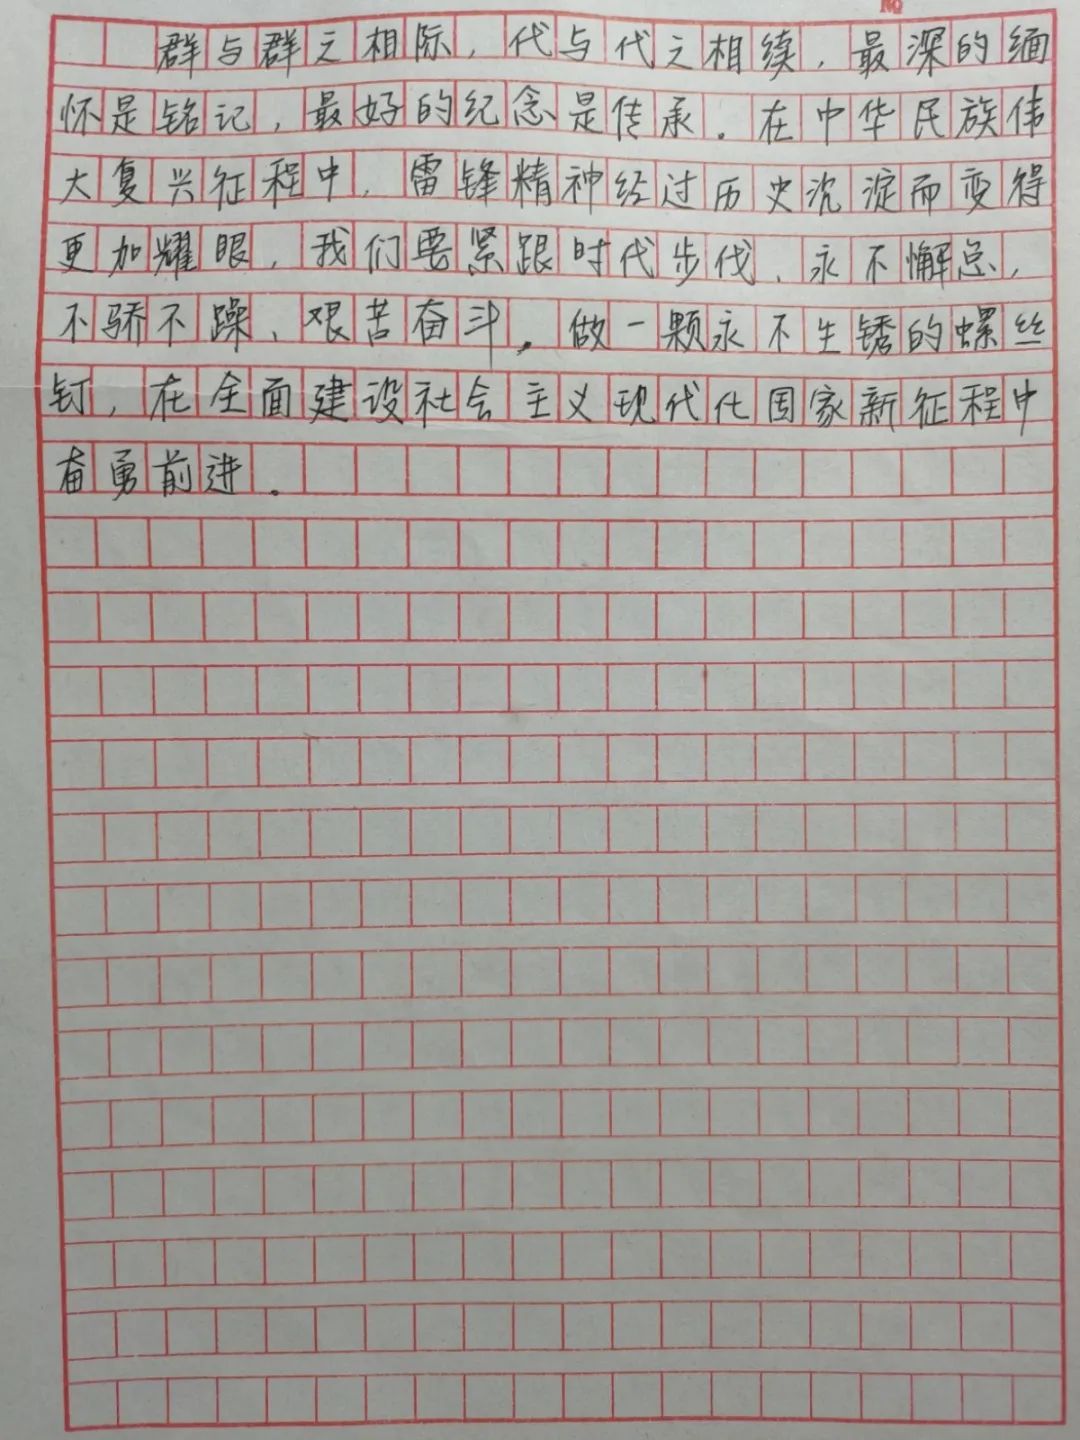 群与群之相际，代与代之相续，最深的缅
怀是铭记，最好的纪念是传承。在中华民族伟
大复兴征程中，雷锋精神经过历史沉淀而变得
更加耀眼，我们要紧跟时代步伐、永不懈怠，
不骄不躁、艰苦奋斗，做一颗永不生锈的螺丝
钉，在全面建设社会主义现代化国家新征程中
奋勇前进。